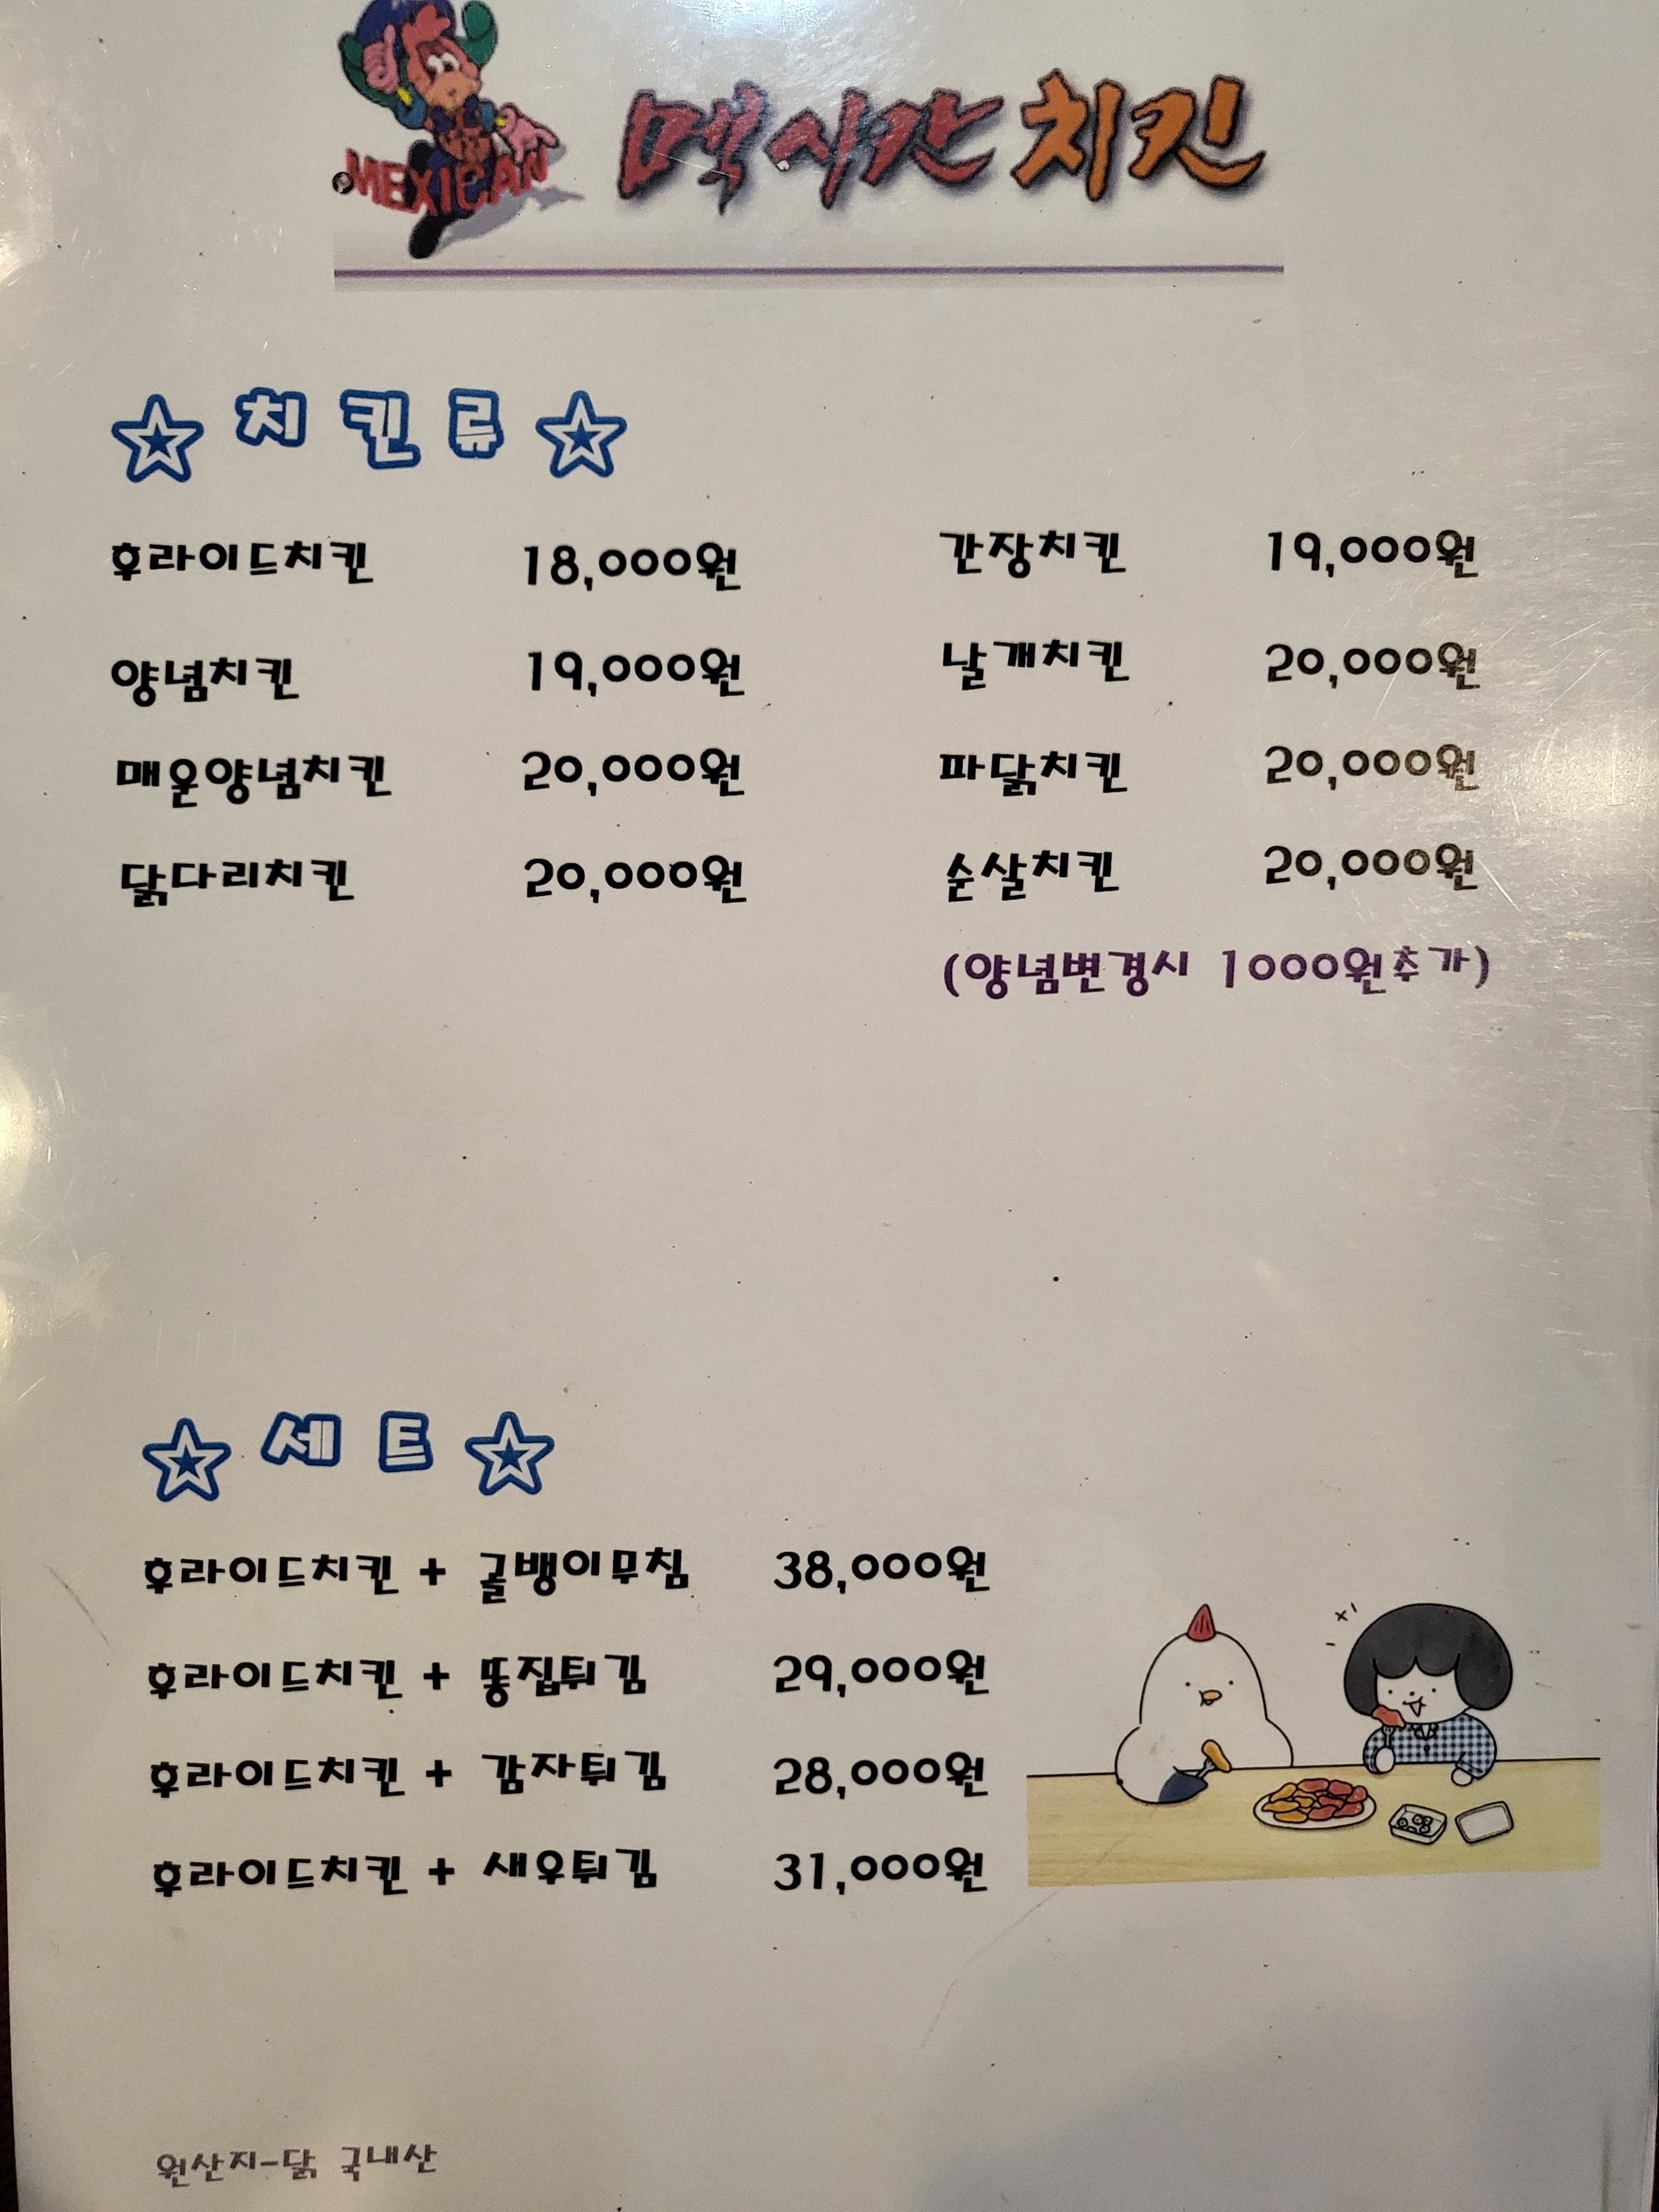 MEXICAN
멕시칸치킨
☆ 치 킨 류 ☆
후라이드치킨 18,000원 간장치킨 19,000원
양념치킨 19,000원 날개치킨 20,000원
매운양념치킨 20,000원 파닭치킨 20,000원
닭다리치킨 20,000원 순살치킨 20,000원
(양념변경시 1000원추가)
☆ 세 트 ☆
후라이드치킨 + 골뱅이무침 38,000원
후라이드치킨 + 똥집튀김 29,000원
후라이드치킨 + 감자튀김 28,000원
후라이드치킨 + 새우튀김 31,000원
원산지-닭 국내산